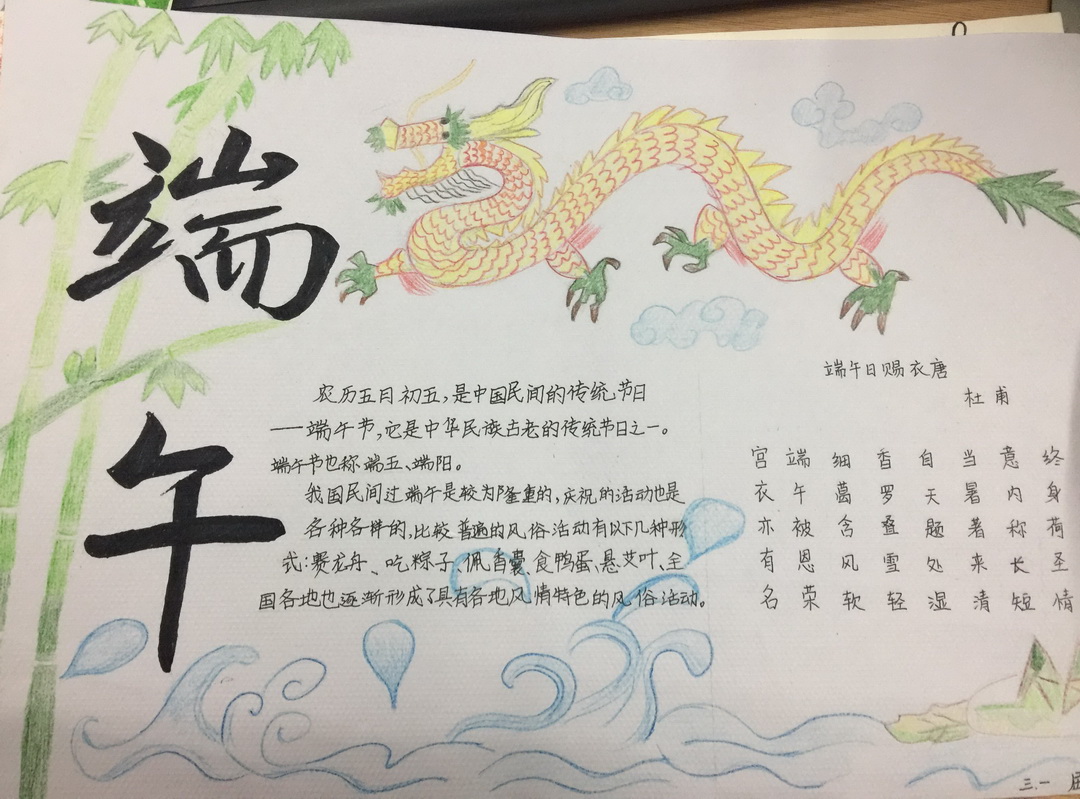 端午
农历五月初五,是中国民间的传统节日
——端午节,它是中华民族古老的传统节日之一。
端午节也称端五、端阳。
我国民间过端午是较为隆重的,庆祝的活动也是
各种各样的,比较普遍的风俗活动有以下几种形
式:赛龙舟、吃粽子、佩香囊、食鸭蛋、悬艾叶、全
国各地也逐渐形成了具有各地风情特色的风俗活动。
端午日赐衣唐
杜甫
宫衣亦有名
端午被恩荣
细葛含风软
香罗叠雪轻
自天题处湿
当暑著来清
意内称长短
终身荷圣情
三.一